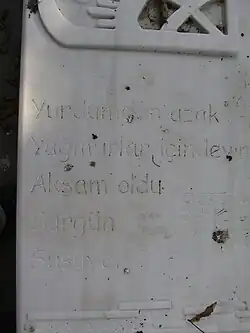 Yurdumdan uzak
Yağmurlar içindeyim
Akşam oldu
Sürgün
Susuyor